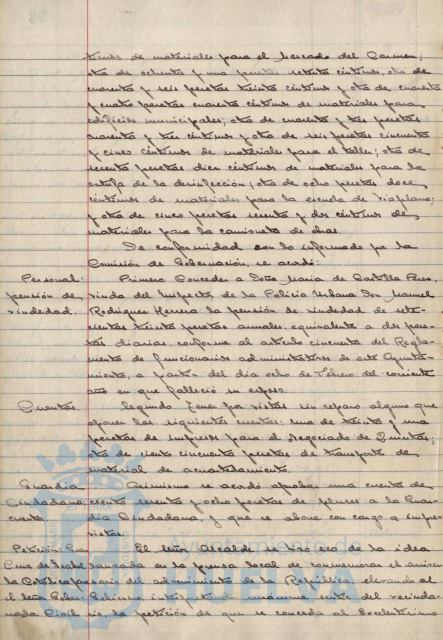 timos de materiales para el Mercado del Carmen;
otra de ochenta y una pesetas setenta céntimos, otra de
cuarenta y seis pesetas treinta céntimos y otra de cuarenta
y cuatro pesetas cuarenta céntimos de materiales para
edificios municipales; otra de cuarenta y tres pesetas
cuarenta y tres céntimos y otra de seis pesetas cincuenta
y cinco céntimos de materiales para el taller; otra de
sesenta pesetas diez céntimos de materiales para la
estufa de la desinfección; otra de ocho pesetas doce
céntimos de materiales para la escuela de
y otra de cinco pesetas sesenta y dos céntimos de
materiales para la camioneta de obras.
De conformidad con lo informado por la
Comisión de Gobernación, se acordó:
Personal: Primero Conceder a Doña María de Castilla Pérez,
pensión de viuda del Inspector de la Policía Urbana Don Manuel
viudedad. Rodríguez Herrera la pensión de viudedad de sete-
cientas treinta pesetas anuales, equivalente a dos pese-
tas diarias, conforme al artículo cincuenta del Regla-
mento de funcionarios administrativos de este Ayunta-
miento, a partir del día ocho de Febrero del corriente
año en que falleció su esposo.
Cuentas. Segundo. Tener por vistas sin reparo alguno que
oponer las siguientes cuentas: una de treinta y una
pesetas de impresos para el Negociado de Quintas;
otra de ciento cincuenta pesetas de transporte de
material de acuartelamiento.
Guardia Asimismo se acordó aprobar una cuenta de
Ciudadana: ciento sesenta y ocho pesetas de pluses a la Guar-
cuenta dia Ciudadana, y que se abone con cargo a impre-
vistos.
Petición Gran El señor Alcalde se hizo eco de la idea
Cruz de Isabel lanzada en la prensa local de conmemorar el aniver-
la Católica para sario del advenimiento de la República, elevando al
el señor Gober- Gobierno, interpretando unánime sentir del vecinda-
nador Civil rio, la petición de que se conceda al Excelentísimo
Ayuntamiento de
HUELVA